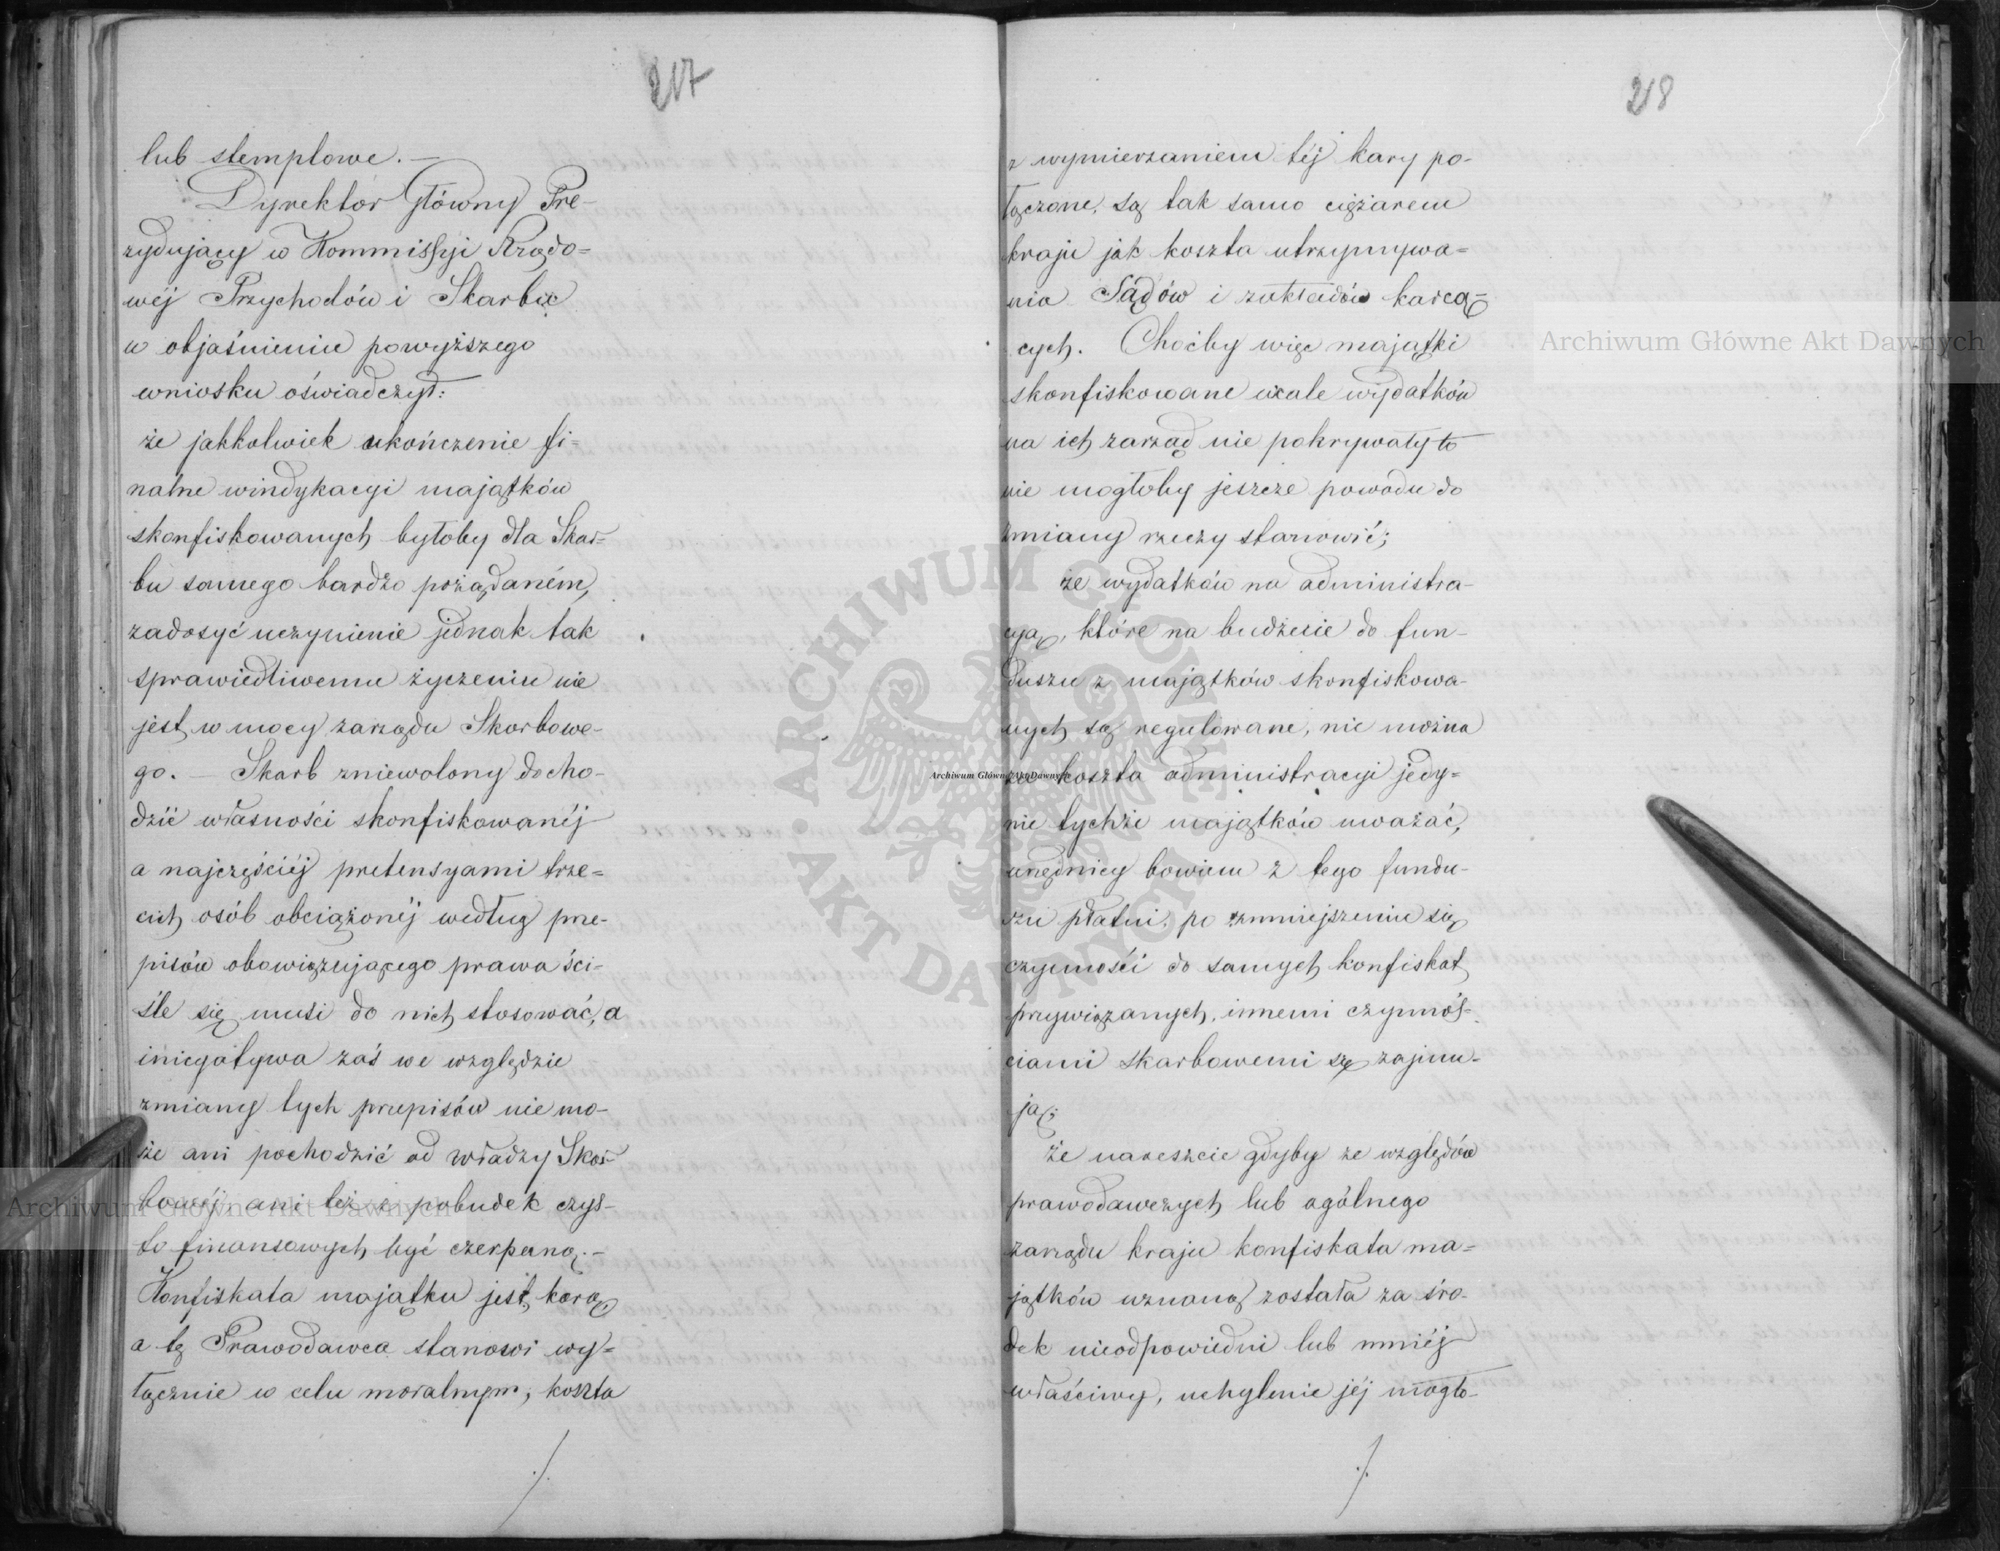 217
lub stemplowe. —
Dyrektor Główny Pre-
zydujący w Kommissyi Rządo=
wéj Przychodów i Skarbu
w objaśnieniu powyższego
wniosku oświadczył:
że jakkolwiek ukończenie fi=
nalne windykacyi majątków
skonfiskowanych byłoby dla Skar-
bu samego bardzo pożądaném,
zadosyć uczynienie jednak tak
sprawiedliwemu życzeniu nie
jest w mocy zarządu Skarbowe-
go. — Skarb zniewolony docho-
dzić własności skonfiskowanéj
a najczęściéj pretensyami trze=
cich osób obciążonéj według prze-
pisów obowiązującego prawa ści-
śle się musi do nich stosować, a
inicyatywa zaś we względzie
zmiany tych przepisów nie mo-
że ani pochodzić od władzy Skar-
bowéj, ani też z pobudek czys-
to finansowych być czerpaną. —
Konfiskata majątku jest karą,
a tę Prawodawca stanowi wy=
łącznie w celu moralnym; koszta
218
z wymierzaniem téj kary po-
łączone, są tak samo ciężarem
kraju jak koszta utrzymywa=
nia Sądów i zakładów karzą=
cych. Choćby więc majątki
skonfiskowane wcale wydatków
na ich zarząd nie pokrywały to
nie mogłoby jeszcze powodu do
zmiany rzeczy stanowić;
że wydatków na administra-
cyą, które na budżecie do fun-
duszu z majątków skonfiskowa-
nych są regulowane, nie można
za koszta administracyi jedy=
nie tychże majątków uważać,
urzędnicy bowiem z tego fundu-
szu płatni, po zmniejszeniu się
czynności do samych konfiskat
przywiązanych, innemi czynnoś-
ciami skarbowemi się zajmu-
ją;
że nareszcie gdyby ze względów
prawodawczych lub ogólnego
zarządu kraju konfiskata ma=
jątków uznaną została za śro-
dek nieodpowiedni lub mniéj
właściwy, uchylenie jéj mogło-
Archiwum Główne Akt Dawnych
Archiwum Główne Akt Dawnych
Archiwum Główne Akt Dawnych
ARCHIWUM GŁÓWNE • AKT DAWNYCH •